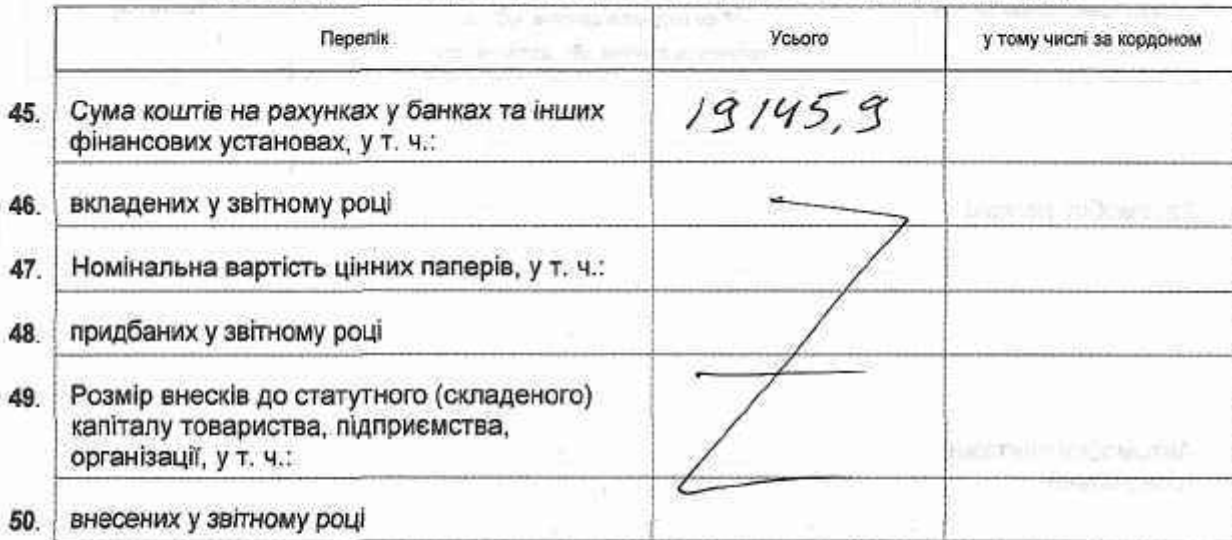 Перелік Усього у тому числі за кордоном
45. Сума коштів на рахунках у банках та інших 19145,9
фінансових установах, у т. ч.:
46. вкладених у звітному році
47. Номінальна вартість цінних паперів, у т. ч.:
48. придбаних у звітному році
49. Розмір внесків до статутного (складеного)
капіталу товариства, підприємства,
організації, у т. ч.:
50. внесених у звітному році